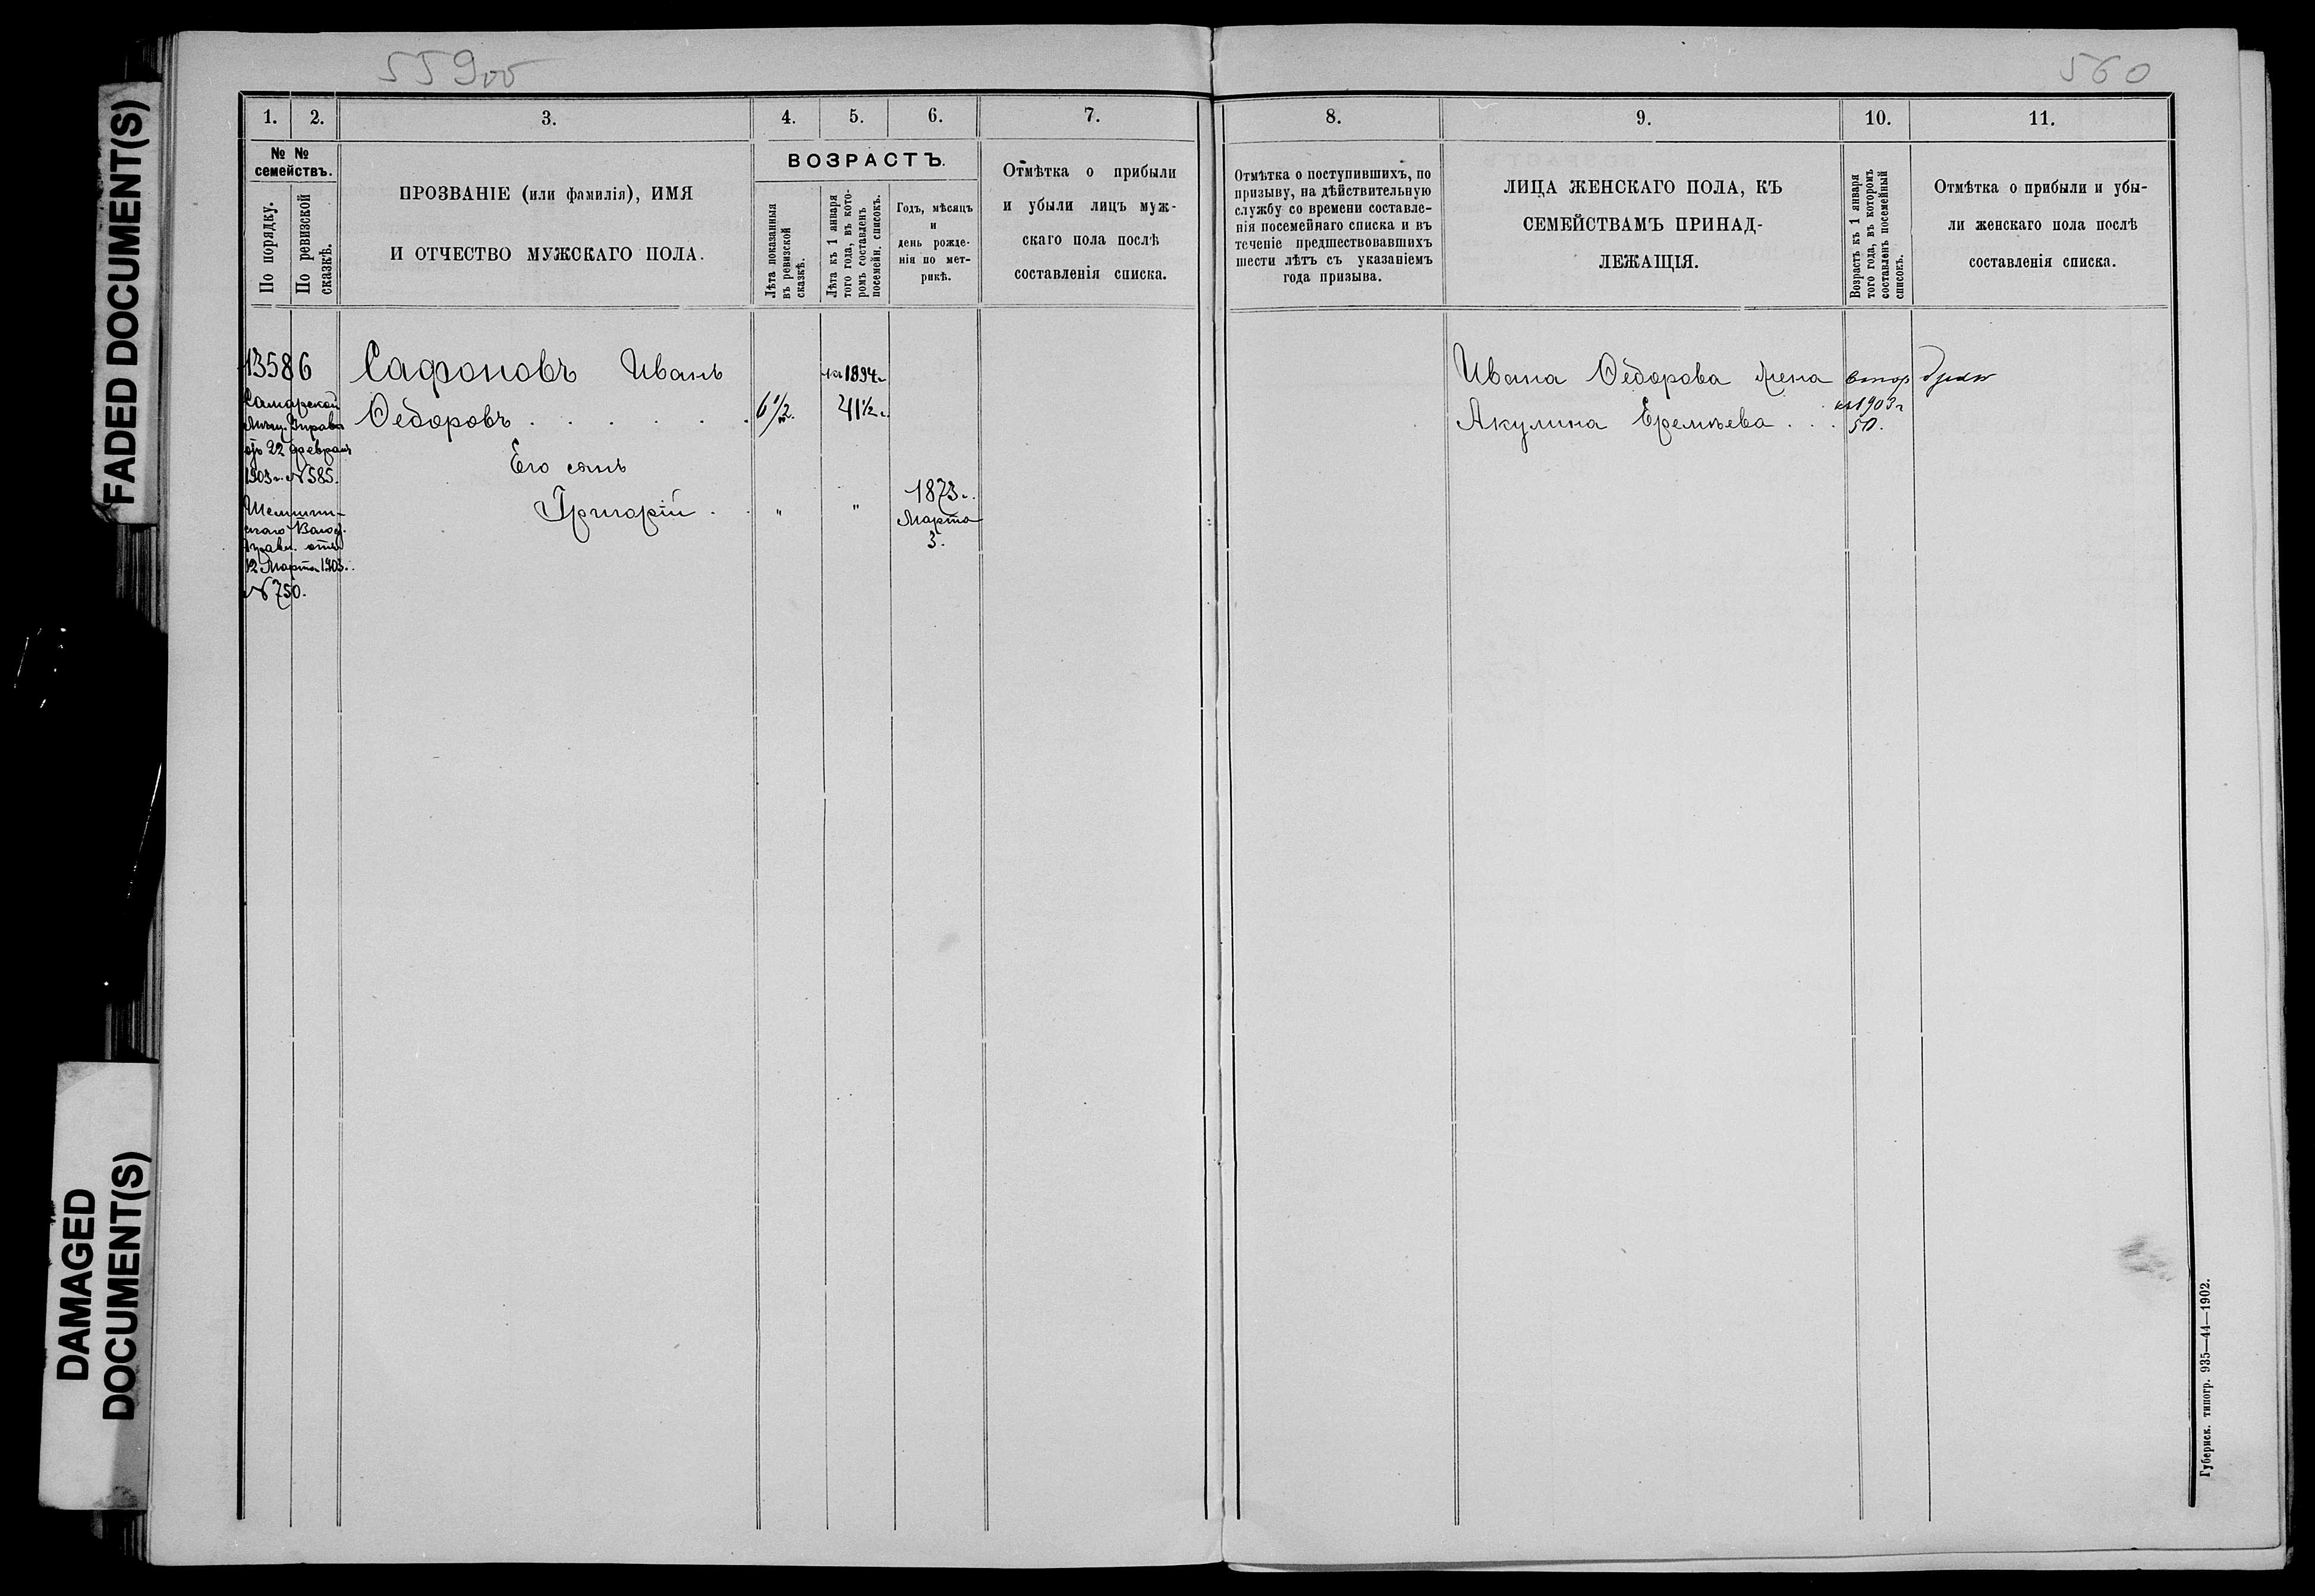 FADED DOCUMENT(S)
DAMAGED
DOCUMENT(S)
559об
1. 2. 3. 4. 5. 6. 7.
№ №
семействъ.
По порядку.
По ревизской
сказкѣ.
ПРОЗВАНІЕ (или фамилія), ИМЯ
И ОТЧЕСТВО МУЖСКАГО ПОЛА.
ВОЗРАСТЪ.
Лѣта показанныя
въ ревизской
сказкѣ.
Лѣта къ 1 января
того года, въ кото-
ромъ составленъ
посемейн. списокъ.
Годъ, мѣсяцъ
и
день рожде-
нія по мет-
рикѣ.
Отмѣтка о прибыли
и убыли лицъ муж-
скаго пола послѣ
составленія списка.
13586
Самарской
Мѣщ. Управы
отъ 22 февраля
1903 г. № 585.
Волос.
Правл. отъ
12 Марта 1903.
№ 750.
Сафоновъ Иванъ
Ѳедоровъ . . . . . .
6½.
на 1894 г.
41½ г.
Его сынъ
Григорій . . " "
1873 г.
Марта
3.
560
8. 9. 10. 11.
Отмѣтка о поступившихъ, по
призыву, на дѣйствительную
службу со времени составле-
нія посемейнаго списка и въ
теченіе предшествовавшихъ
шести лѣтъ съ указаніемъ
года призыва.
ЛИЦА ЖЕНСКАГО ПОЛА, КЪ
СЕМЕЙСТВАМЪ ПРИНАД-
ЛЕЖАЩІЯ.
Возрастъ къ 1 января
того года, въ которомъ
составленъ посемейный
списокъ.
Отмѣтка о прибыли и убы-
ли женскаго пола послѣ
составленія списка.
Ивана Ѳедорова жена втор брак
на 1903 г
Акулина Еремѣева . . . 50.
Губернск. типогр. 935—44—1902.